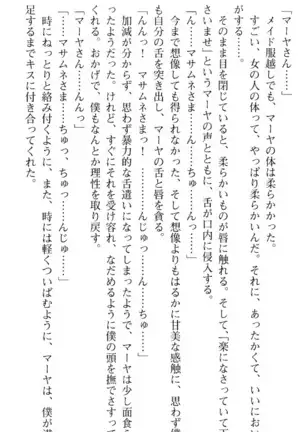 「マーヤさん……」
　メイド服越しでも、マーヤの体は柔らかかった。
　すごい、女の人の体って、やっぱり柔らかいんだ。それに、あったかくて、いいにおい
がする……。
　そのまま目を閉じていると、柔らかいものが唇に触れる。そして、「楽になさっていて下
さいませ」というマーヤの声とともに、舌が口内に侵入する。
「んっ……マサムネさま……ちゅ……んっ……」
　今まで想像しても得られなかった、そして想像よりもはるかに甘美な感触に、思わず僕
も自分の舌を突き出し、マーヤの舌と唇を貪る。
「んんっ！……マサムネさまっ！……んじゅっ……ん……ちゅ……」
　加減が分からず、思わず暴力的な舌遣いになってしまったようで、マーヤは少し面食ら
ったようだった。けれど、すぐにそれを受け容れ、なだめるように僕の頭を撫でさすって
くれる。おかげで、僕もなんとか理性を取り戻す。
「マーヤさん……んんっ」
「マサムネさま……ちゅっ、ちゅっ……んじゅ……」
　時にねっとりと絡み付くように、また、時には軽くついばむように、マーヤは、僕が満
足するまでキスに付き合ってくれた。